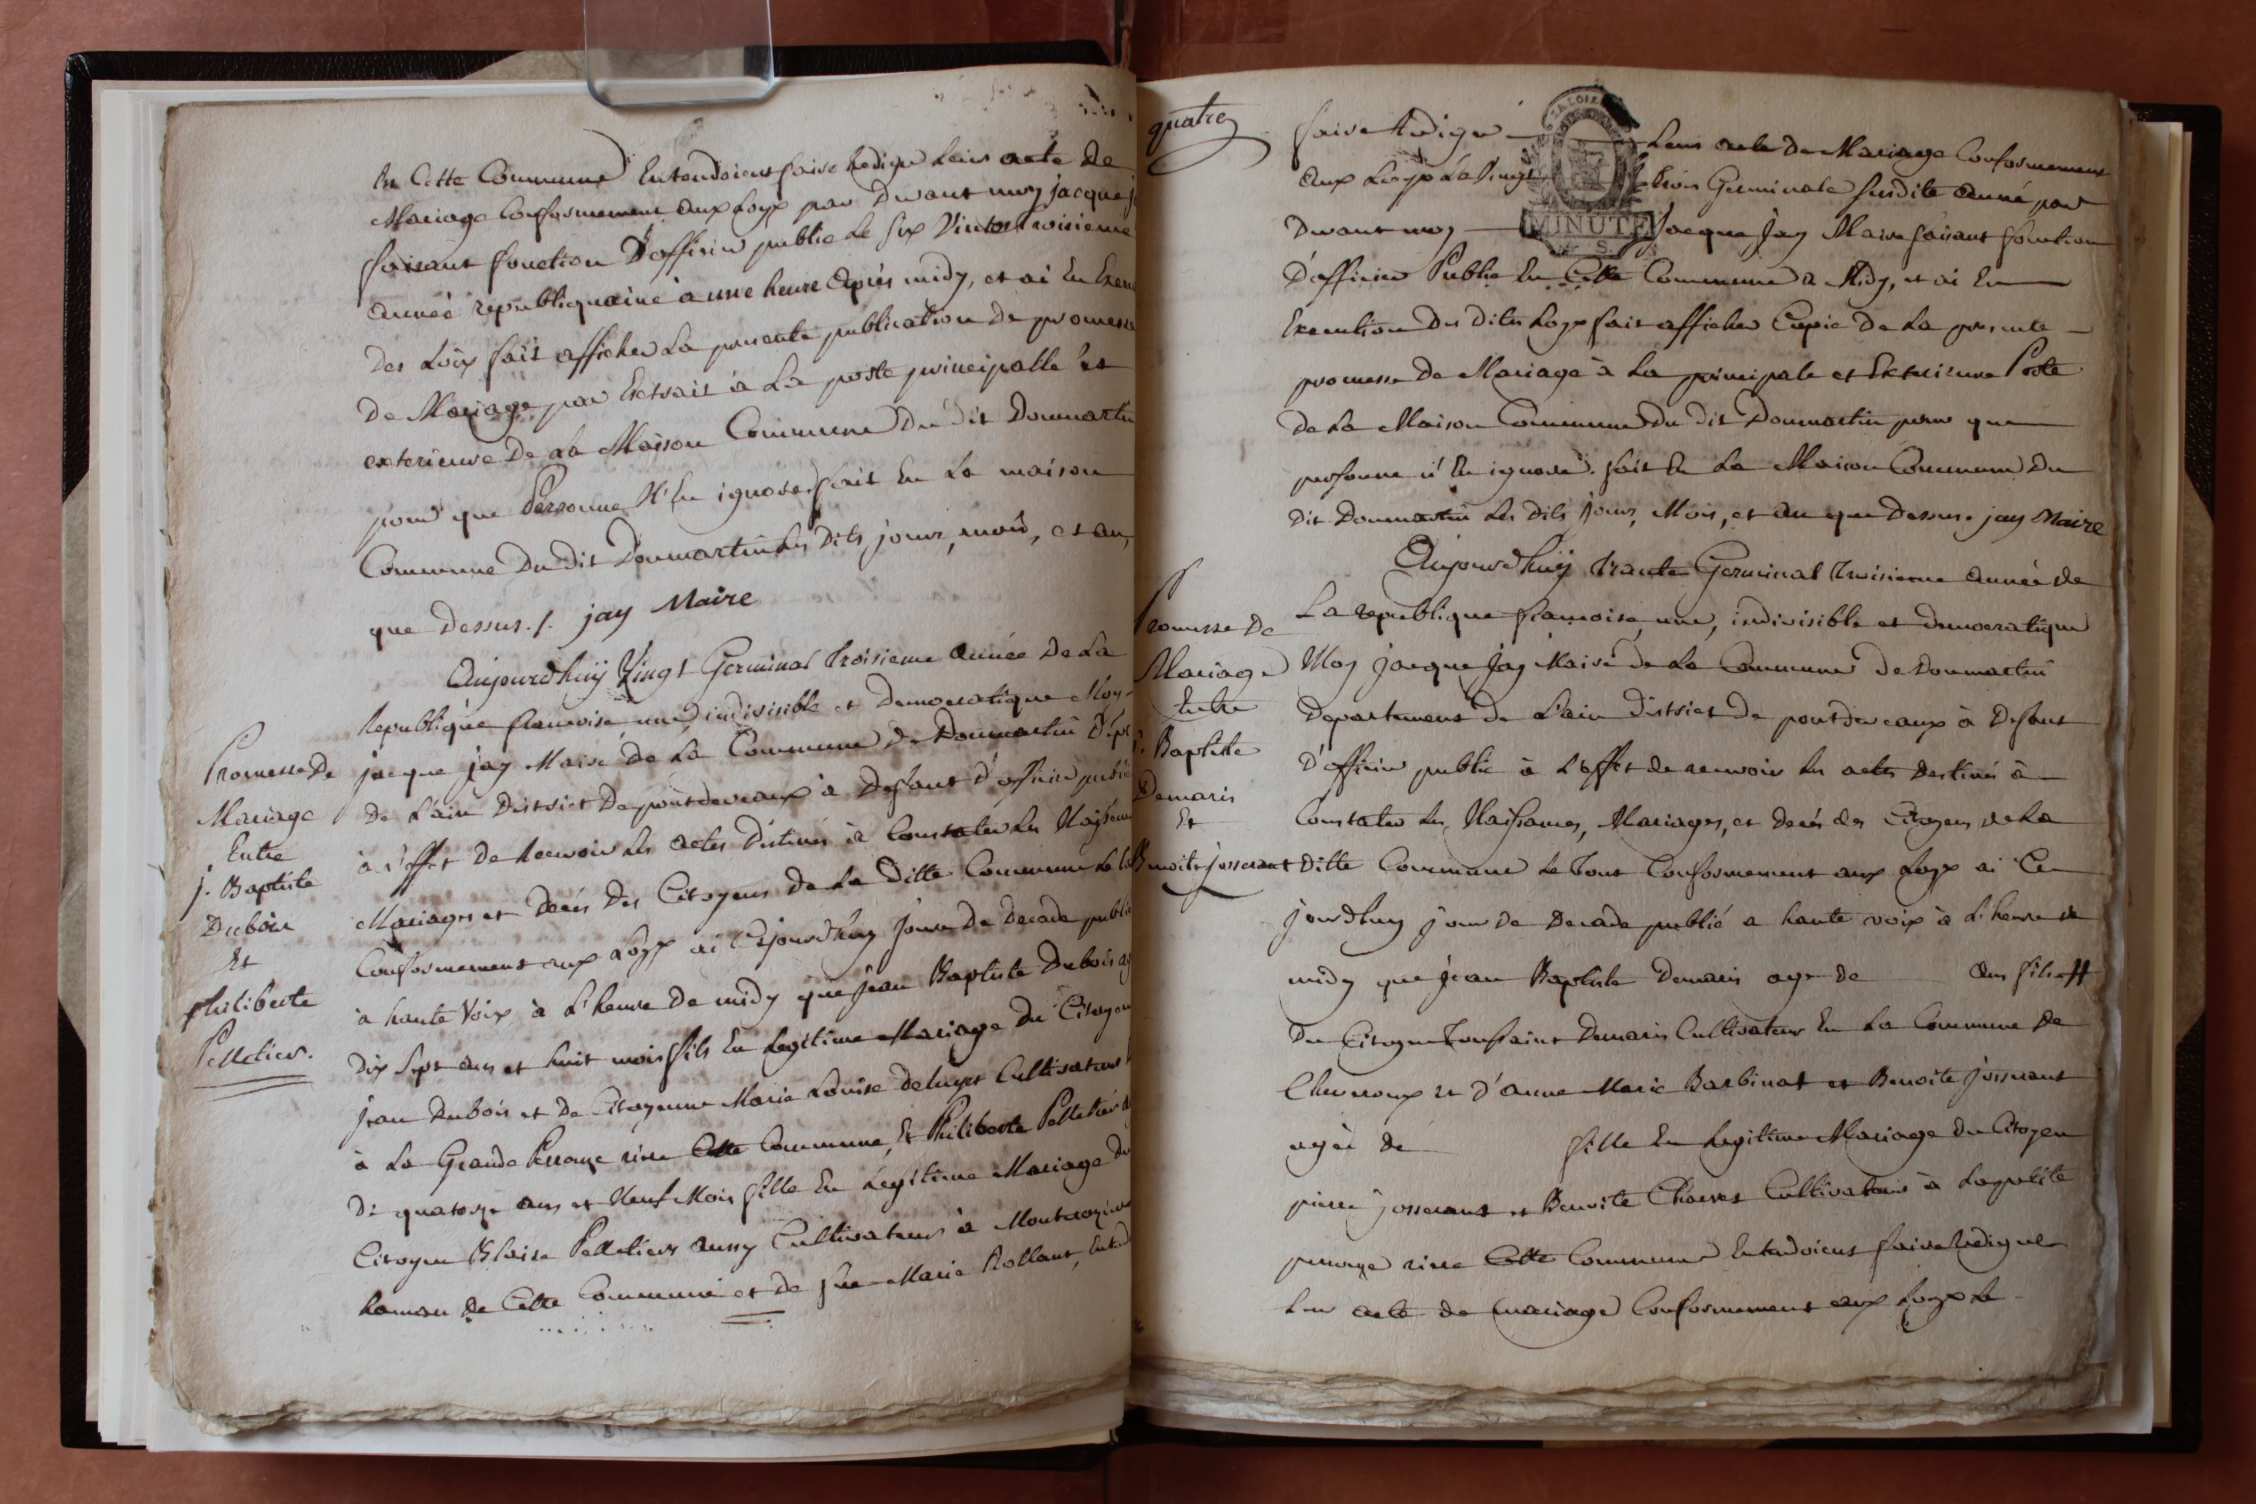 En Cette Commune Entendoient faire Rediger Leur acte De
Mariage Conformement aux Loyx par Devant moy jacque j
faisant fonction D'officier public Le six Ventos troisieme
année republiquaine a une heure après midy, et ai En Exe
des Loix fait afficher La presente publication De promesse
De Mariage par Extrait à La porte principalle et
exterieure De La Maison Commune Du dit Dommartin
pour que Personne N'En ignore. fait En La maison
Commune Du dit Dommartin Les Dits jours, mois, et an,
que dessus ./. jay Maire
Aujourdhuy Vingt Germinal troisieme année De La
Republique francoise une, indivisible et Democratique Moy
jacque jay Maire De La Commune de Dommartin Dépt
De L'ain District De pontdeveaux à Defaut d'officier public
à l'effet De Recevoir Les actes Destinés à Constater Les Naissan
Mariages et Decés Des Citoyens De La Ditte Commune Le to
Conformement aux Loyx ai Cejourdhuy jour De Decade publié
à haute Voix à L'heure De midy que jean Baptiste Dubois ag
Dix sept ans et huit mois fils En Legitime Mariage Du Citoyen
jean Dubois et De Citoyenne Marie Louise Cultivateur
à La Grande Perrouze riere Cette Commune, Et Philiberte Pelletier
De quatorze ans et Neuf Mois fille En Légitime Mariage du
Citoyen Blaise Pelletier aussy Cultivateur à
hameau De Cette Commune et De feue Marie Rollant, Entend
Promesse De
Mariage
Entre
j. Baptiste
Dubois
Et
Philiberte
Pelletier.
quatre
faire Rediger Leur acte De Mariage Conformement
aux Loyx Le Vingt Germinale susdite année par
Devant moy Jacque Jay Maire faisant fonction
D'officier Public En Cette Commune a Midy, et ai En
Execution Des Dites Loyx fait afficher Copie De La presente
promesse De Mariage à La principale et Exterieure Porte
De La Maison Commune Du Dit Dommartin pour que
personne n'En ignore. fait En La Maison Commune Du
Dit Dommartin Les Dits jours, Mois, et an que Dessus. jay Maire
Aujourdhuy trante Germinal troisieme année de
La republique francoise, une, indivisible et democratique
Moy jacque Jay Maire de La Commune de Dommartin
Departement de L'ain District De pontdeveaux à Defaut
D'officier public à L'effet de recevoir Les actes Destinés à
Constater Les Naissances, Mariages, et decés des Citoyens de La
Ditte Commune Le Tout Conformement aux Loyx ai Ce
jourdhuy jour De Decade publié a haute voix à L'heure de
midy que Jean Baptiste Demaris age de ans fils
Du Citoyen Toussaint Demaris Cultivateur En La Commune De
Chevroux et d'anne Marie Barbinat et Benoite josserant
agée de fille En Legitime Mariage du Citoyen
pierre josserant et Benoite Cultivateur à La petite
perrouze riere Cette Commune Entendoient faire rediger
Leur acte de mariage Conformement aux Loyx Le
Promesse De
Mariage
Entre
Baptiste
Demaris
Et
Benoite josserant
MINUTE